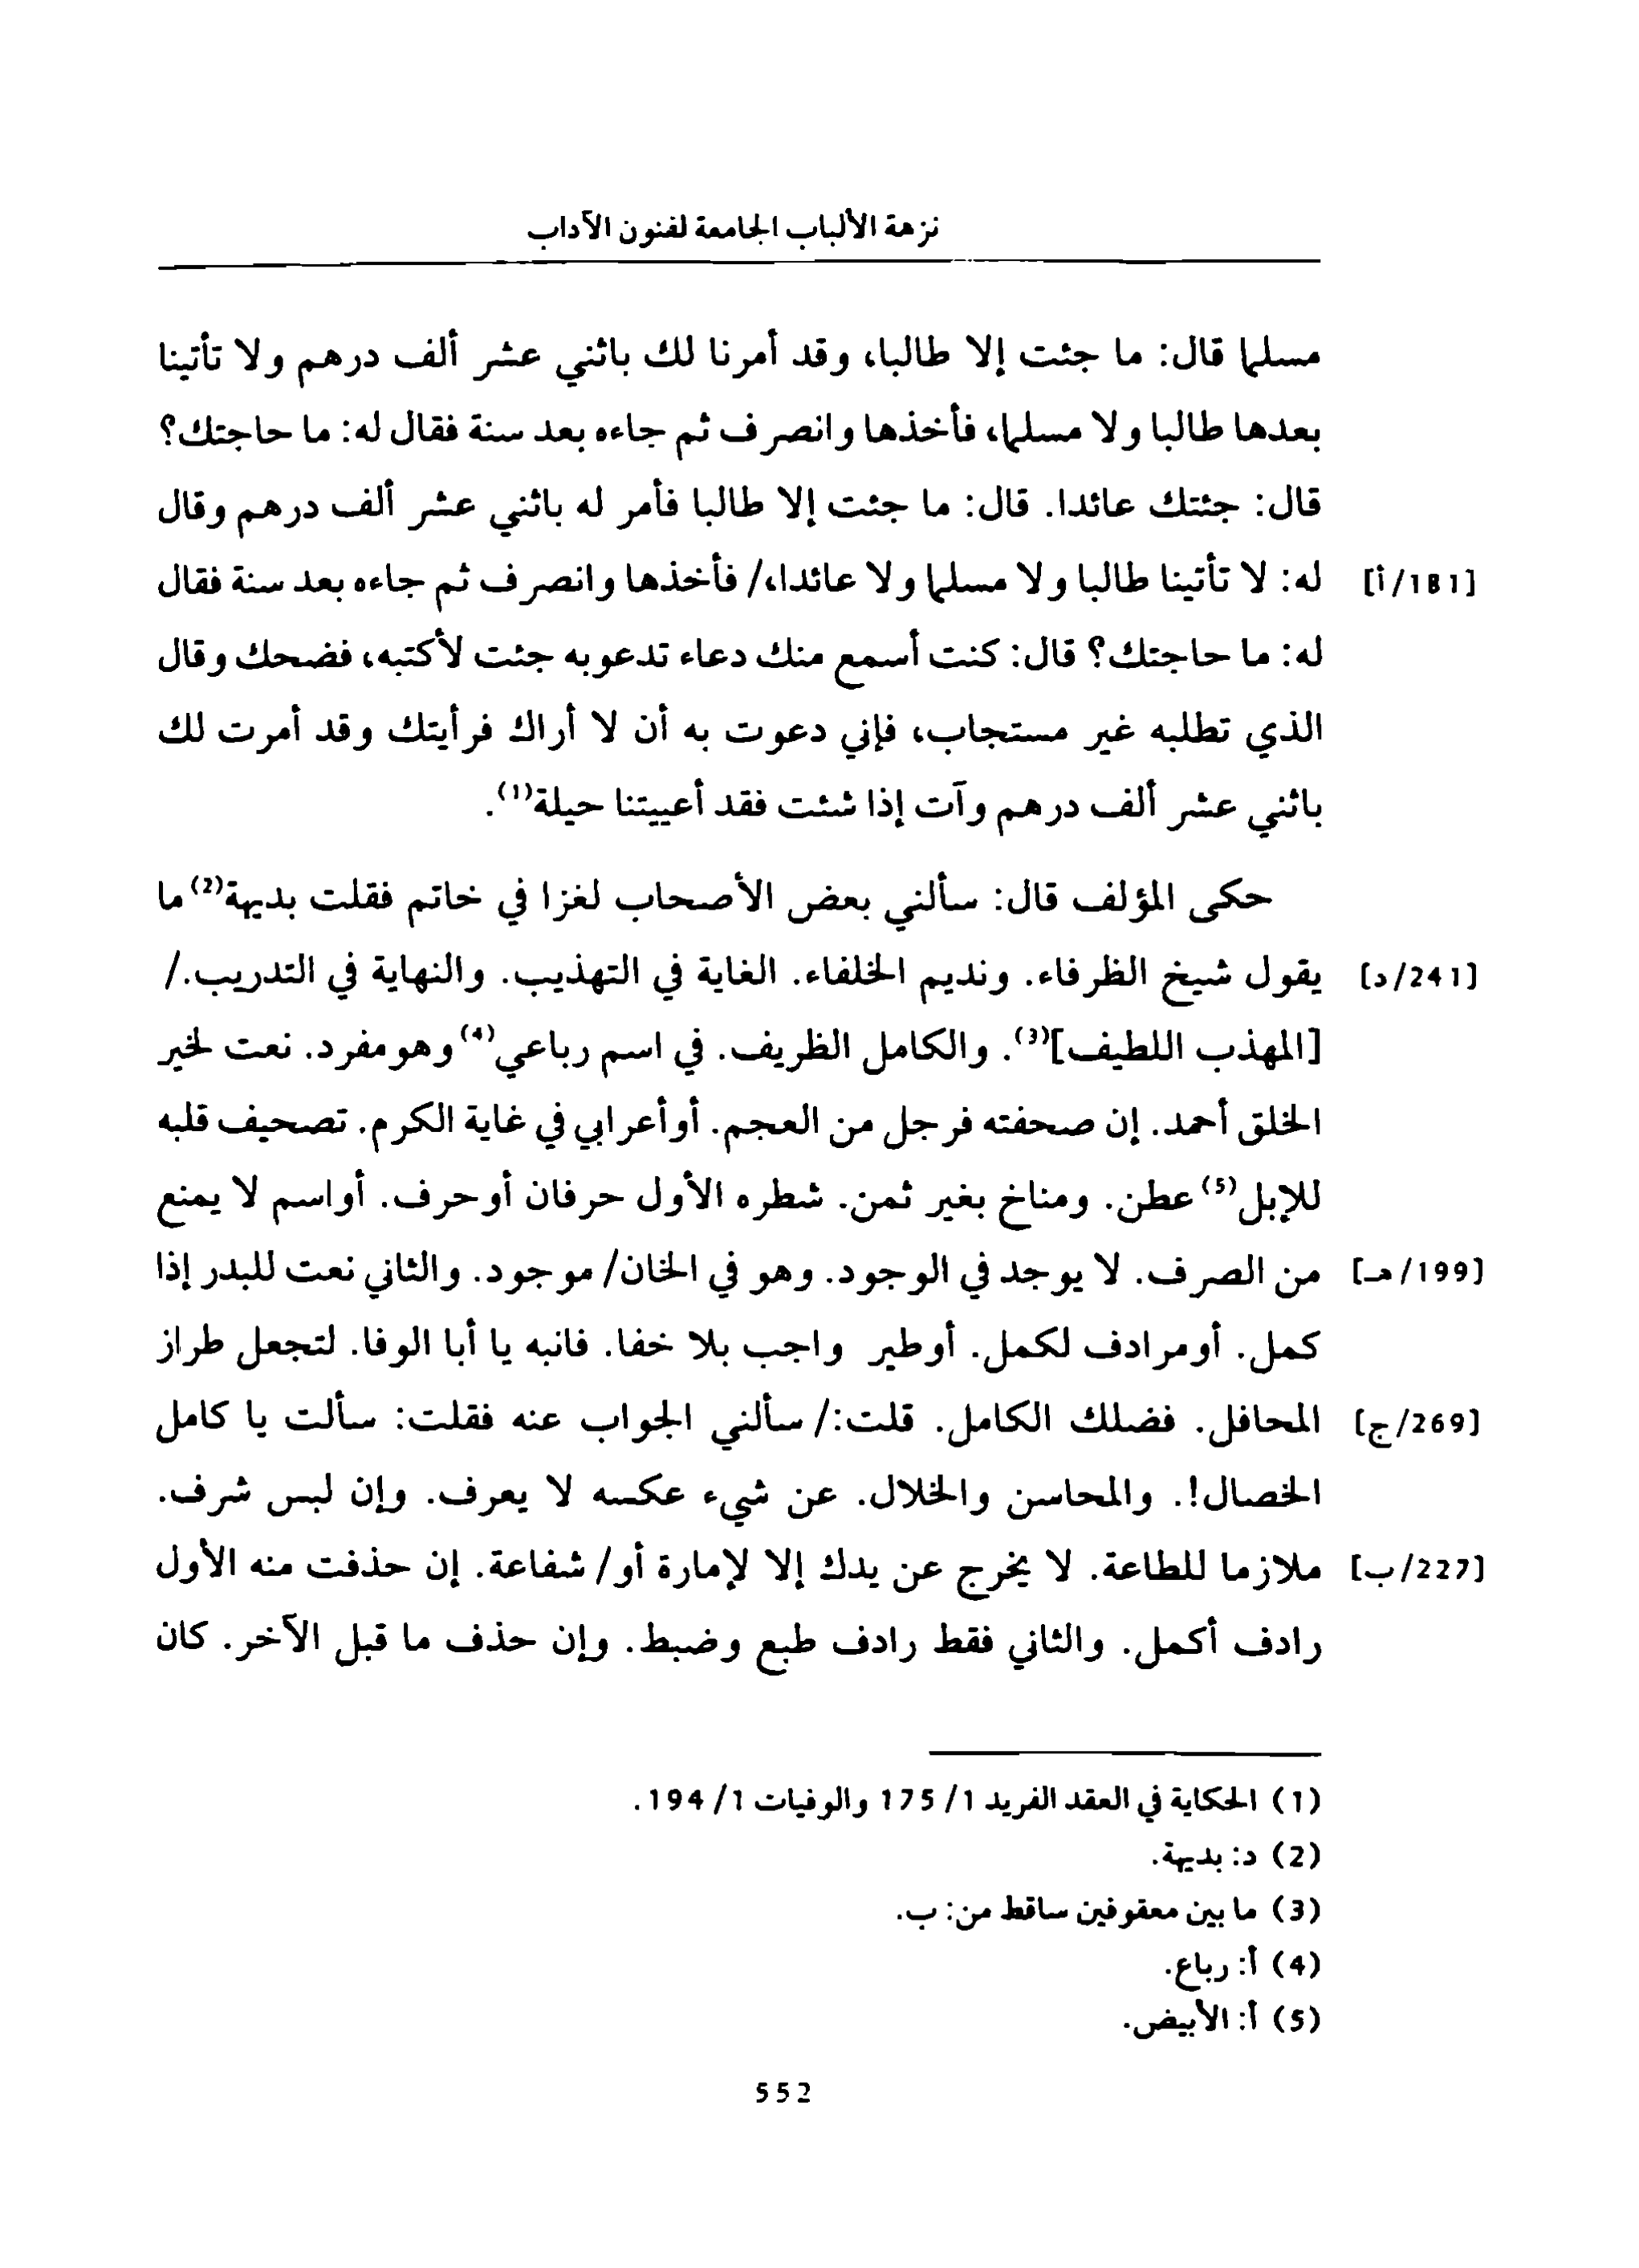 نزهة الألباب الجامعة لفنون الآداب
مسلما قال: ما جئت إلا طالبا، وقد أمرنا لك باثني عشر ألف درهم ولا تأتينا
بعدها طالبا ولا مسلما، فأخذها وانصرف ثم جاءه بعد سنة فقال له: ما حاجتك؟
قال: جئتك عائدا. قال: ما جئت إلا طالبا فأمر له باثني عشر ألف درهم وقال
[181/أ] له: لا تأتينا طالبا ولا مسلما ولا عائدا،/ فأخذها وانصرف ثم جاءه بعد سنة فقال
له: ما حاجتك؟ قال: كنت أسمع منك دعاء تدعوبه جئت لأكتبه، فضحك وقال
الذي تطلبه غير مستجاب، فإني دعوت به أن لا أراك فرأيتك وقد أمرت لك
باثني عشر ألف درهم وآت إذا شئت فقد أعييتنا حيلة(1).
حكى المؤلف قال: سألني بعض الأصحاب لغزا في خاتم فقلت بديهة(2) ما
[241/د] يقول شيخ الظرفاء. ونديم الخلفاء. الغاية في التهذيب. والنهاية في التدريب./
[المهذب اللطيف](3). والكامل الظريف. في اسم رباعي(4) وهومفرد. نعت لخير
الخلق أحمد. إن صحفته فرجل من العجم. أوأعرابي في غاية الكرم. تصحيف قلبه
للإبل(5) عطن. ومناخ بغير ثمن. شطره الأول حرفان أوحرف. أواسم لا يمنع
[199/هـ] من الصرف. لا يوجد في الوجود. وهو في الخان/ موجود. والثاني نعت للبدر إذا
كمل. أومرادف لكمل. أوطير واجب بلا خفا. فانبه يا أبا الوفا. لتجعل طراز
[269/ج] المحافل. فضلك الكامل. قلت:/ سألني الجواب عنه فقلت: سألت يا كامل
الخصال!. والمحاسن والخلال. عن شيء عكسه لا يعرف. وإن لبس شرف.
[227/ب] ملازما للطاعة. لا يخرج عن يدك إلا لإمارة أو/ شفاعة. إن حذفت منه الأول
رادف أكمل. والثاني فقط رادف طبع وضبط. وإن حذف ما قبل الآخر. كان
(1) الحكاية في العقد الفريد 1/ 175 والوفيات 1/ 194.
(2) د: بديهة.
(3) ما بين معقوفين ساقط من: ب.
(4) أ: رباع.
(5) أ: الأبيض.
552